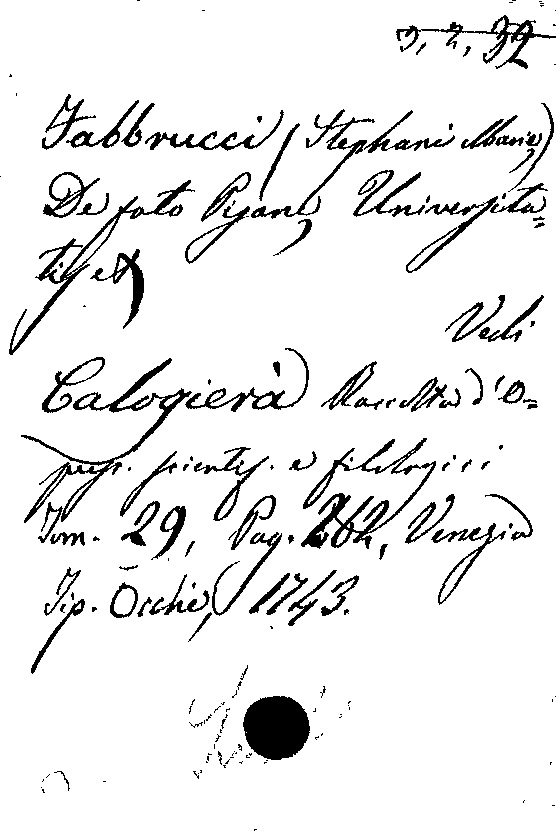 3, 2, 32
Fabbrucci (Stephani Mariæ)
De fato Pisanæ Universita=
tis etc
Vedi
Calogierà Raccolta d'O=
pusc. scientif. e filologici
Tom. 29, Pag. 262, Venezia
Tip. Occhi, 1743.